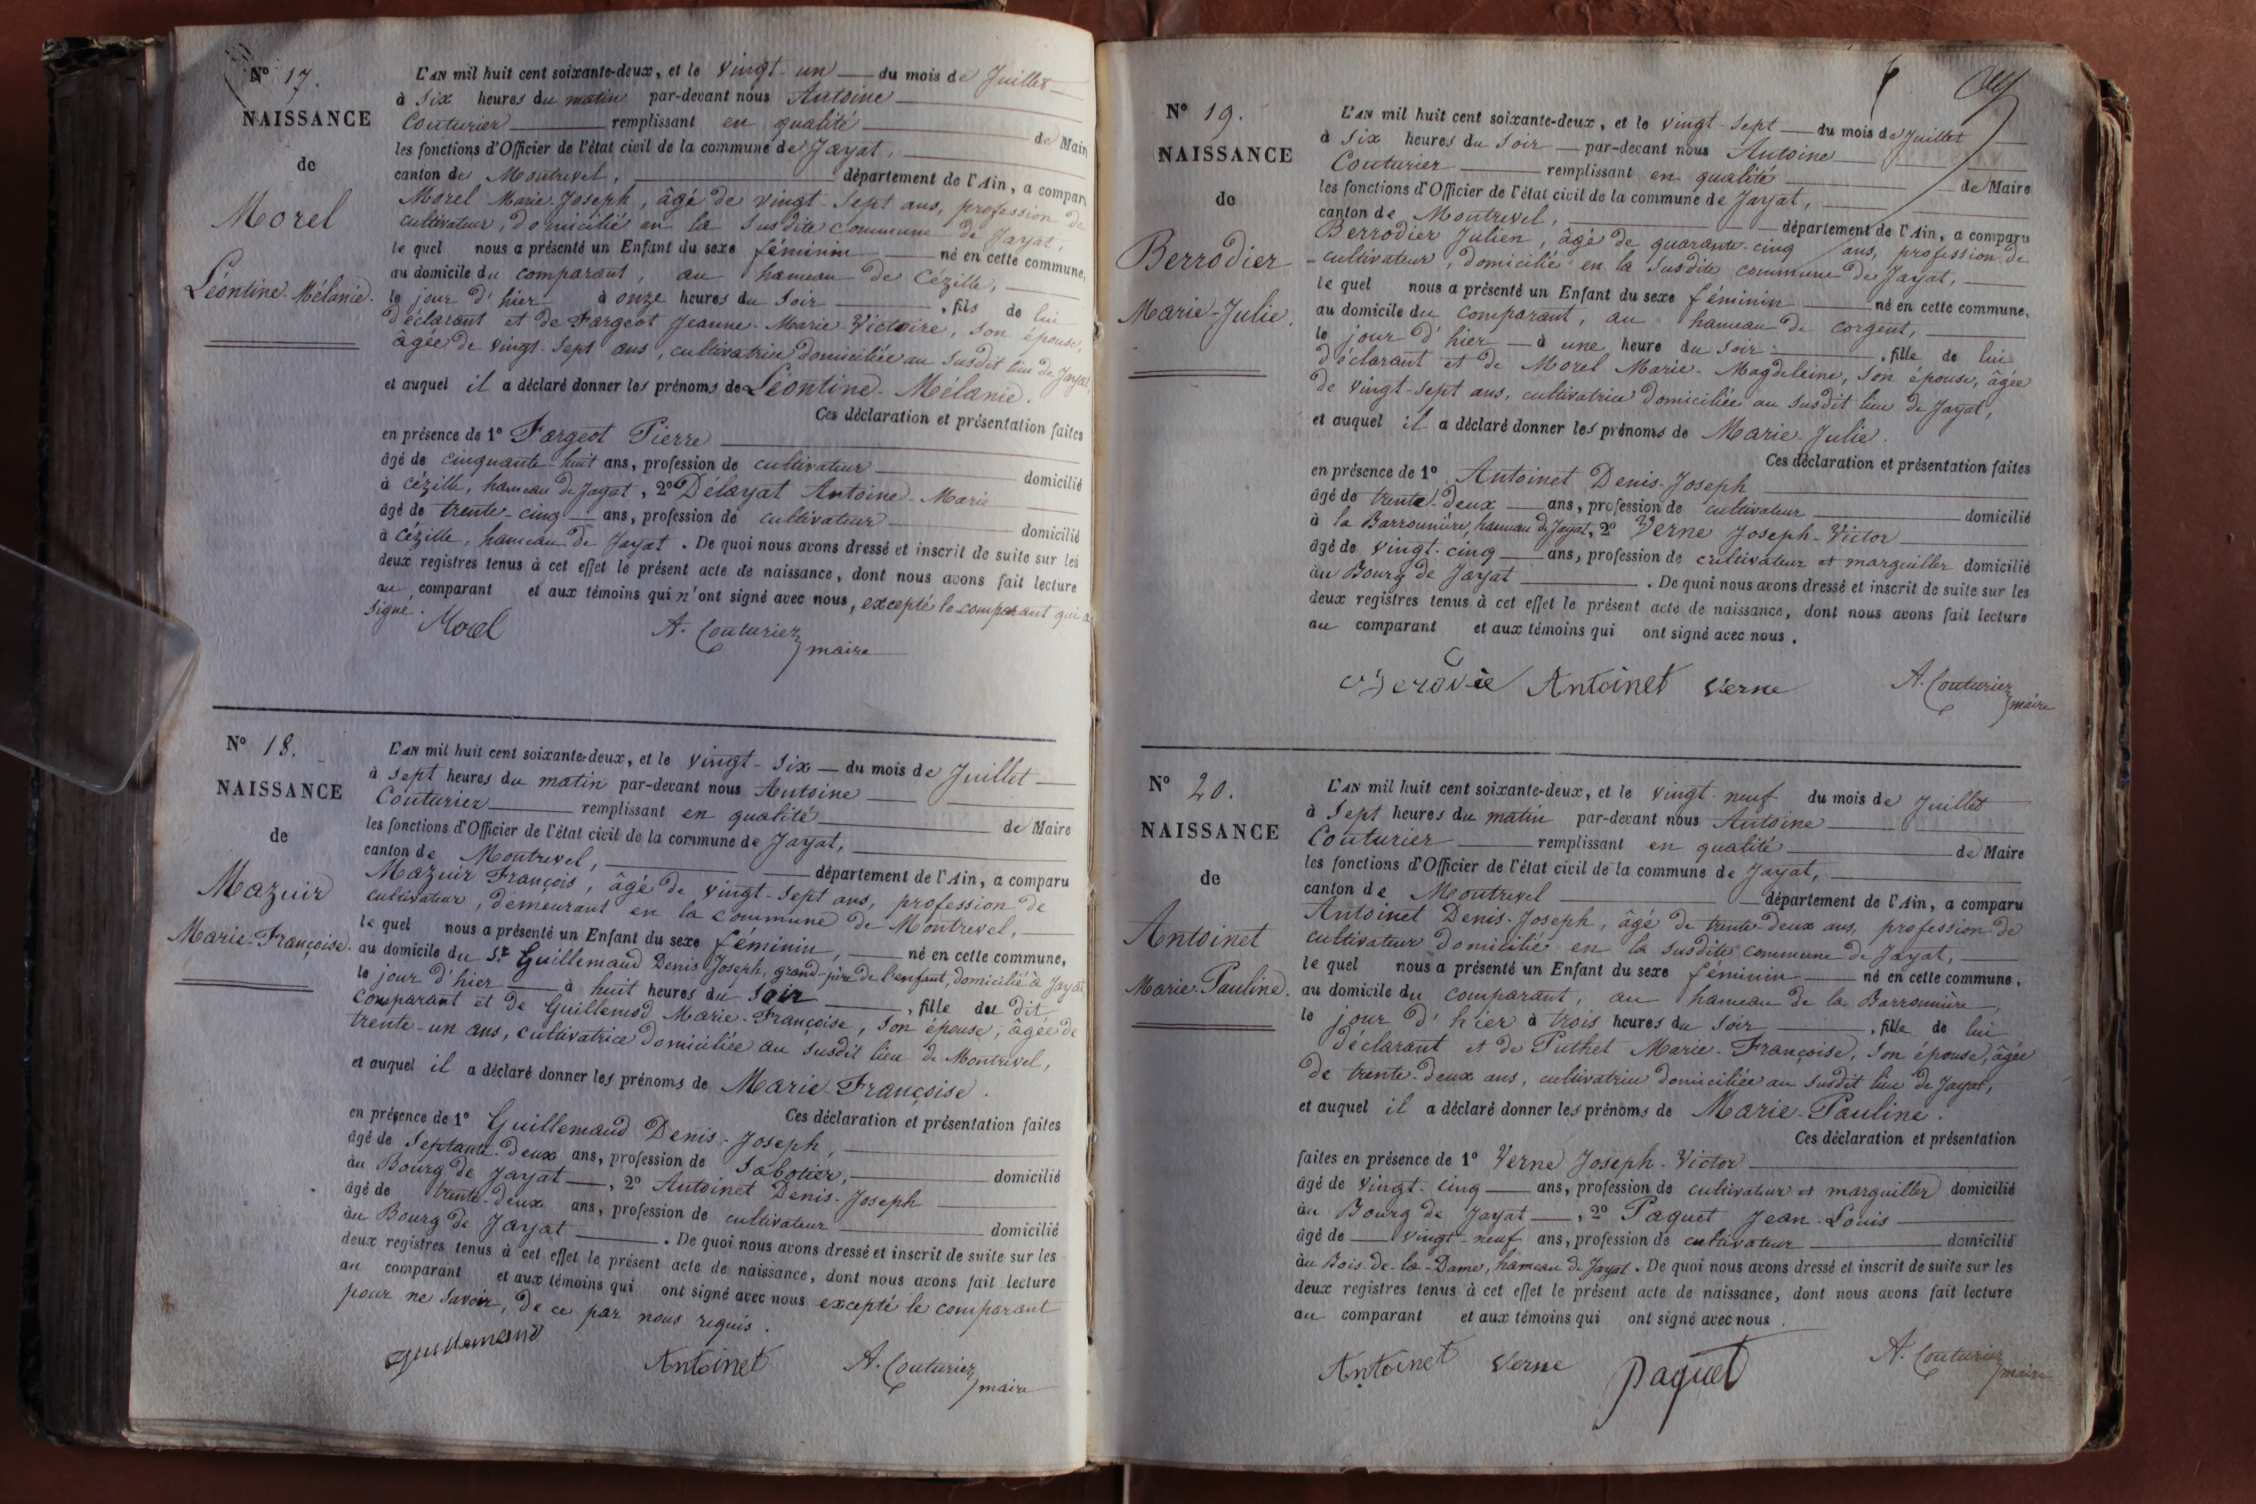 N° 17.
NAISSANCE
de
Morel
Léontine-Mélanie.
L'AN mil huit cent soixante-deux, et le vingt-un du mois de Juillet
à six heures du matin par-devant nous Antoine
Couturier remplissant en qualité de Maire
les fonctions d'Officier de l'état civil de la commune de Jayat,
canton de Montrevel, département de l'Ain, a comparu
Morel Marie-Joseph, âgé de vingt-sept ans, profession de
cultivateur, domicilié en la susdite commune de Jayat,
lequel nous a présenté un Enfant du sexe féminin né en cette commune,
au domicile du comparant, au hameau de Cézille,
le jour d'hier à onze heures du soir, fils de lui
déclarant et de Fargeot Jeanne-Marie-Victoire, son épouse,
âgée de vingt-sept ans, cultivatrice domiciliée au susdit lieu de Jayat,
et auquel il a déclaré donner les prénoms de Léontine-Mélanie.
Ces déclaration et présentation faites
en présence de 1° Fargeot Pierre
âgé de cinquante-huit ans, profession de cultivateur domicilié
à Cézille, hameau de Jayat, 2° Délayat Antoine-Marie
âgé de trente-cinq ans, profession de cultivateur domicilié
à Cézille, hameau de Jayat. De quoi nous avons dressé et inscrit de suite sur les
deux registres tenus à cet effet le présent acte de naissance, dont nous avons fait lecture
au comparant et aux témoins qui n'ont signé avec nous, excepté le comparant qui a
signé.
Morel A. Couturier maire
N° 18.
NAISSANCE
de
Mazuir
Marie-Françoise.
L'AN mil huit cent soixante-deux, et le vingt-six du mois de Juillet
à sept heures du matin par-devant nous Antoine
Couturier remplissant en qualité de Maire
les fonctions d'Officier de l'état civil de la commune de Jayat,
canton de Montrevel, département de l'Ain, a comparu
Mazuir François, âgé de vingt-sept ans, profession de
cultivateur, demeurant en la commune de Montrevel,
lequel nous a présenté un Enfant du sexe féminin, né en cette commune,
au domicile du Sr Guillemaud Denis Joseph, grand-père de l'enfant, domicilié à Jayat
le jour d'hier à huit heures du soir, fille du dit
comparant et de Guillemod Marie-Françoise, son épouse, âgée de
trente-un ans, cultivatrice domiciliée au susdit lieu de Montrevel,
et auquel il a déclaré donner les prénoms de Marie Françoise.
Ces déclaration et présentation faites
en présence de 1° Guillemaud Denis-Joseph,
âgé de septante-deux ans, profession de sabotier, domicilié
au Bourg de Jayat, 2° Antoinet Denis-Joseph
âgé de trente-deux ans, profession de cultivateur domicilié
au Bourg de Jayat. De quoi nous avons dressé et inscrit de suite sur les
deux registres tenus à cet effet le présent acte de naissance, dont nous avons fait lecture
au comparant et aux témoins qui ont signé avec nous excepté le comparant
pour ne savoir, de ce par nous requis.
Guillemaud Antoinet A. Couturier maire
N° 19.
NAISSANCE
de
Berrodier
Marie-Julie.
L'AN mil huit cent soixante-deux, et le vingt-sept du mois de Juillet
à six heures du soir par-devant nous Antoine
Couturier remplissant en qualité de Maire
les fonctions d'Officier de l'état civil de la commune de Jayat,
canton de Montrevel, département de l'Ain, a comparu
Berrodier Julien, âgé de quarante-cinq ans, profession de
cultivateur, domicilié en la susdite commune de Jayat,
lequel nous a présenté un Enfant du sexe féminin né en cette commune,
au domicile du comparant, au hameau de Corgent,
le jour d'hier à une heure du soir, fille de lui
déclarant et de Morel Marie-Magdeleine, son épouse, âgée
de vingt-sept ans, cultivatrice domiciliée au susdit lieu de Jayat,
et auquel il a déclaré donner les prénoms de Marie-Julie.
Ces déclaration et présentation faites
en présence de 1° Antoinet Denis-Joseph
âgé de trente-deux ans, profession de cultivateur domicilié
à la Barronnière, hameau de Jayat, 2° Verne Joseph-Victor
âgé de vingt-cinq ans, profession de cultivateur et marguiller domicilié
au Bourg de Jayat. De quoi nous avons dressé et inscrit de suite sur les
deux registres tenus à cet effet le présent acte de naissance, dont nous avons fait lecture
au comparant et aux témoins qui ont signé avec nous.
Antoinet Verne A. Couturier maire
N° 20.
NAISSANCE
de
Antoinet
Marie-Pauline.
L'AN mil huit cent soixante-deux, et le vingt-neuf du mois de Juillet
à sept heures du matin par-devant nous Antoine
Couturier remplissant en qualité de Maire
les fonctions d'Officier de l'état civil de la commune de Jayat,
canton de Montrevel département de l'Ain, a comparu
Antoinet Denis-Joseph, âgé de trente-deux ans, profession de
cultivateur domicilié en la susdite commune de Jayat,
lequel nous a présenté un Enfant du sexe féminin né en cette commune,
au domicile du comparant, au hameau de la Barronnière,
le jour d'hier à trois heures du soir, fille de lui
déclarant et de Puthet Marie-Françoise, son épouse, âgée
de trente-deux ans, cultivatrice domiciliée au susdit lieu de Jayat,
et auquel il a déclaré donner les prénoms de Marie-Pauline.
Ces déclaration et présentation
faites en présence de 1° Verne Joseph-Victor
âgé de vingt-cinq ans, profession de cultivateur et marguiller domicilié
au Bourg de Jayat, 2° Paquet Jean-Louis
âgé de vingt-neuf ans, profession de cultivateur domicilié
au Bois-de-la-Dame, hameau de Jayat. De quoi nous avons dressé et inscrit de suite sur les
deux registres tenus à cet effet le présent acte de naissance, dont nous avons fait lecture
au comparant et aux témoins qui ont signé avec nous.
Antoinet Verne Paquet A. Couturier maire